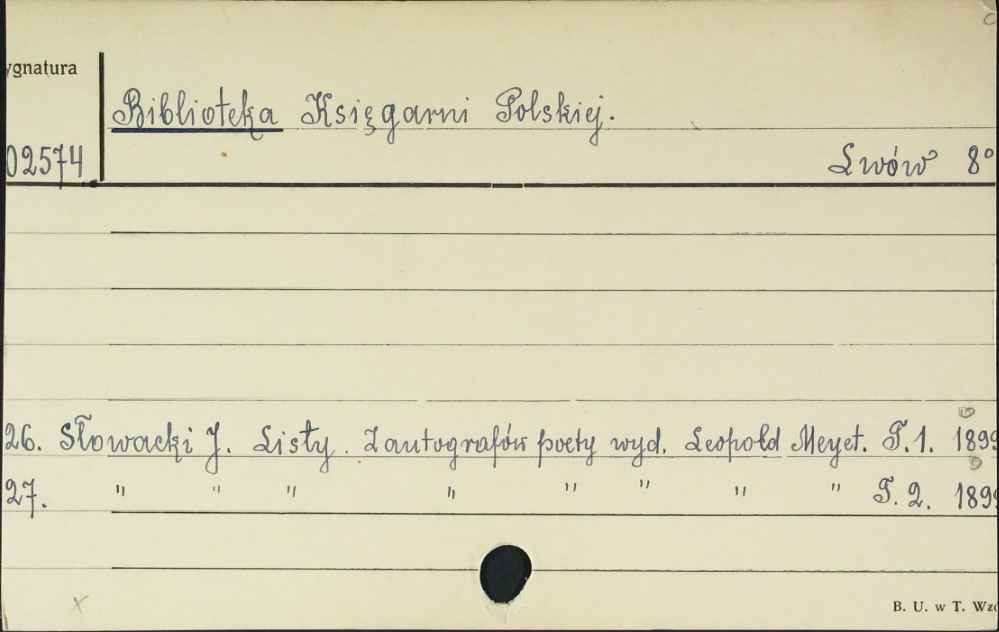 ygnatura
Biblioteka Księgarni Polskiej.
02574 Lwów 8°
26. Słowacki J. Listy. Z autografów poety wyd. Leopold Meyet. T. 1. 1899
27. " " " " " " " " T. 2. 1899
B. U. w T. Wzó